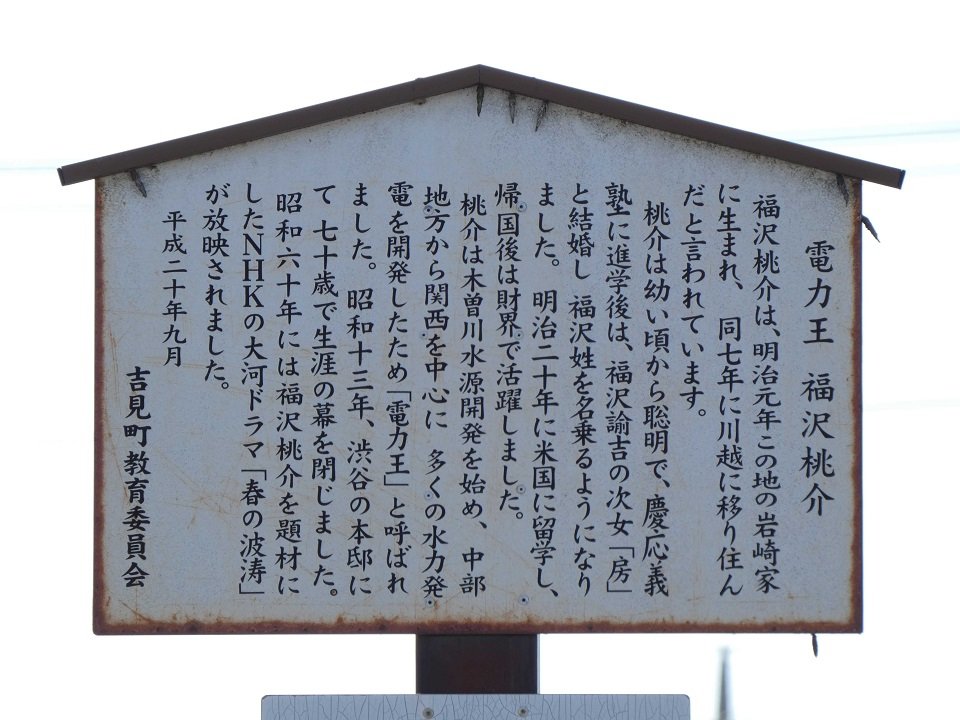 電力王 福沢桃介
福沢桃介は、明治元年この地の岩崎家
に生まれ、同七年に川越に移り住ん
だと言われています。
桃介は幼い頃から聡明で、慶応義
塾に進学後は、福沢諭吉の次女「房」
と結婚し 福沢姓を名乗るようになり
ました。明治二十年に米国に留学し、
帰国後は財界で活躍しました。
桃介は木曽川水源開発を始め、中部
地方から関西を中心に 多くの水力発
電を開発したため「電力王」と呼ばれ
ました。昭和十三年、渋谷の本邸に
て 七十歳で生涯の幕を閉じました。
昭和六十年には福沢桃介を題材に
したNHKの大河ドラマ「春の波涛」
が放映されました。
平成二十年九月
吉見町教育委員会